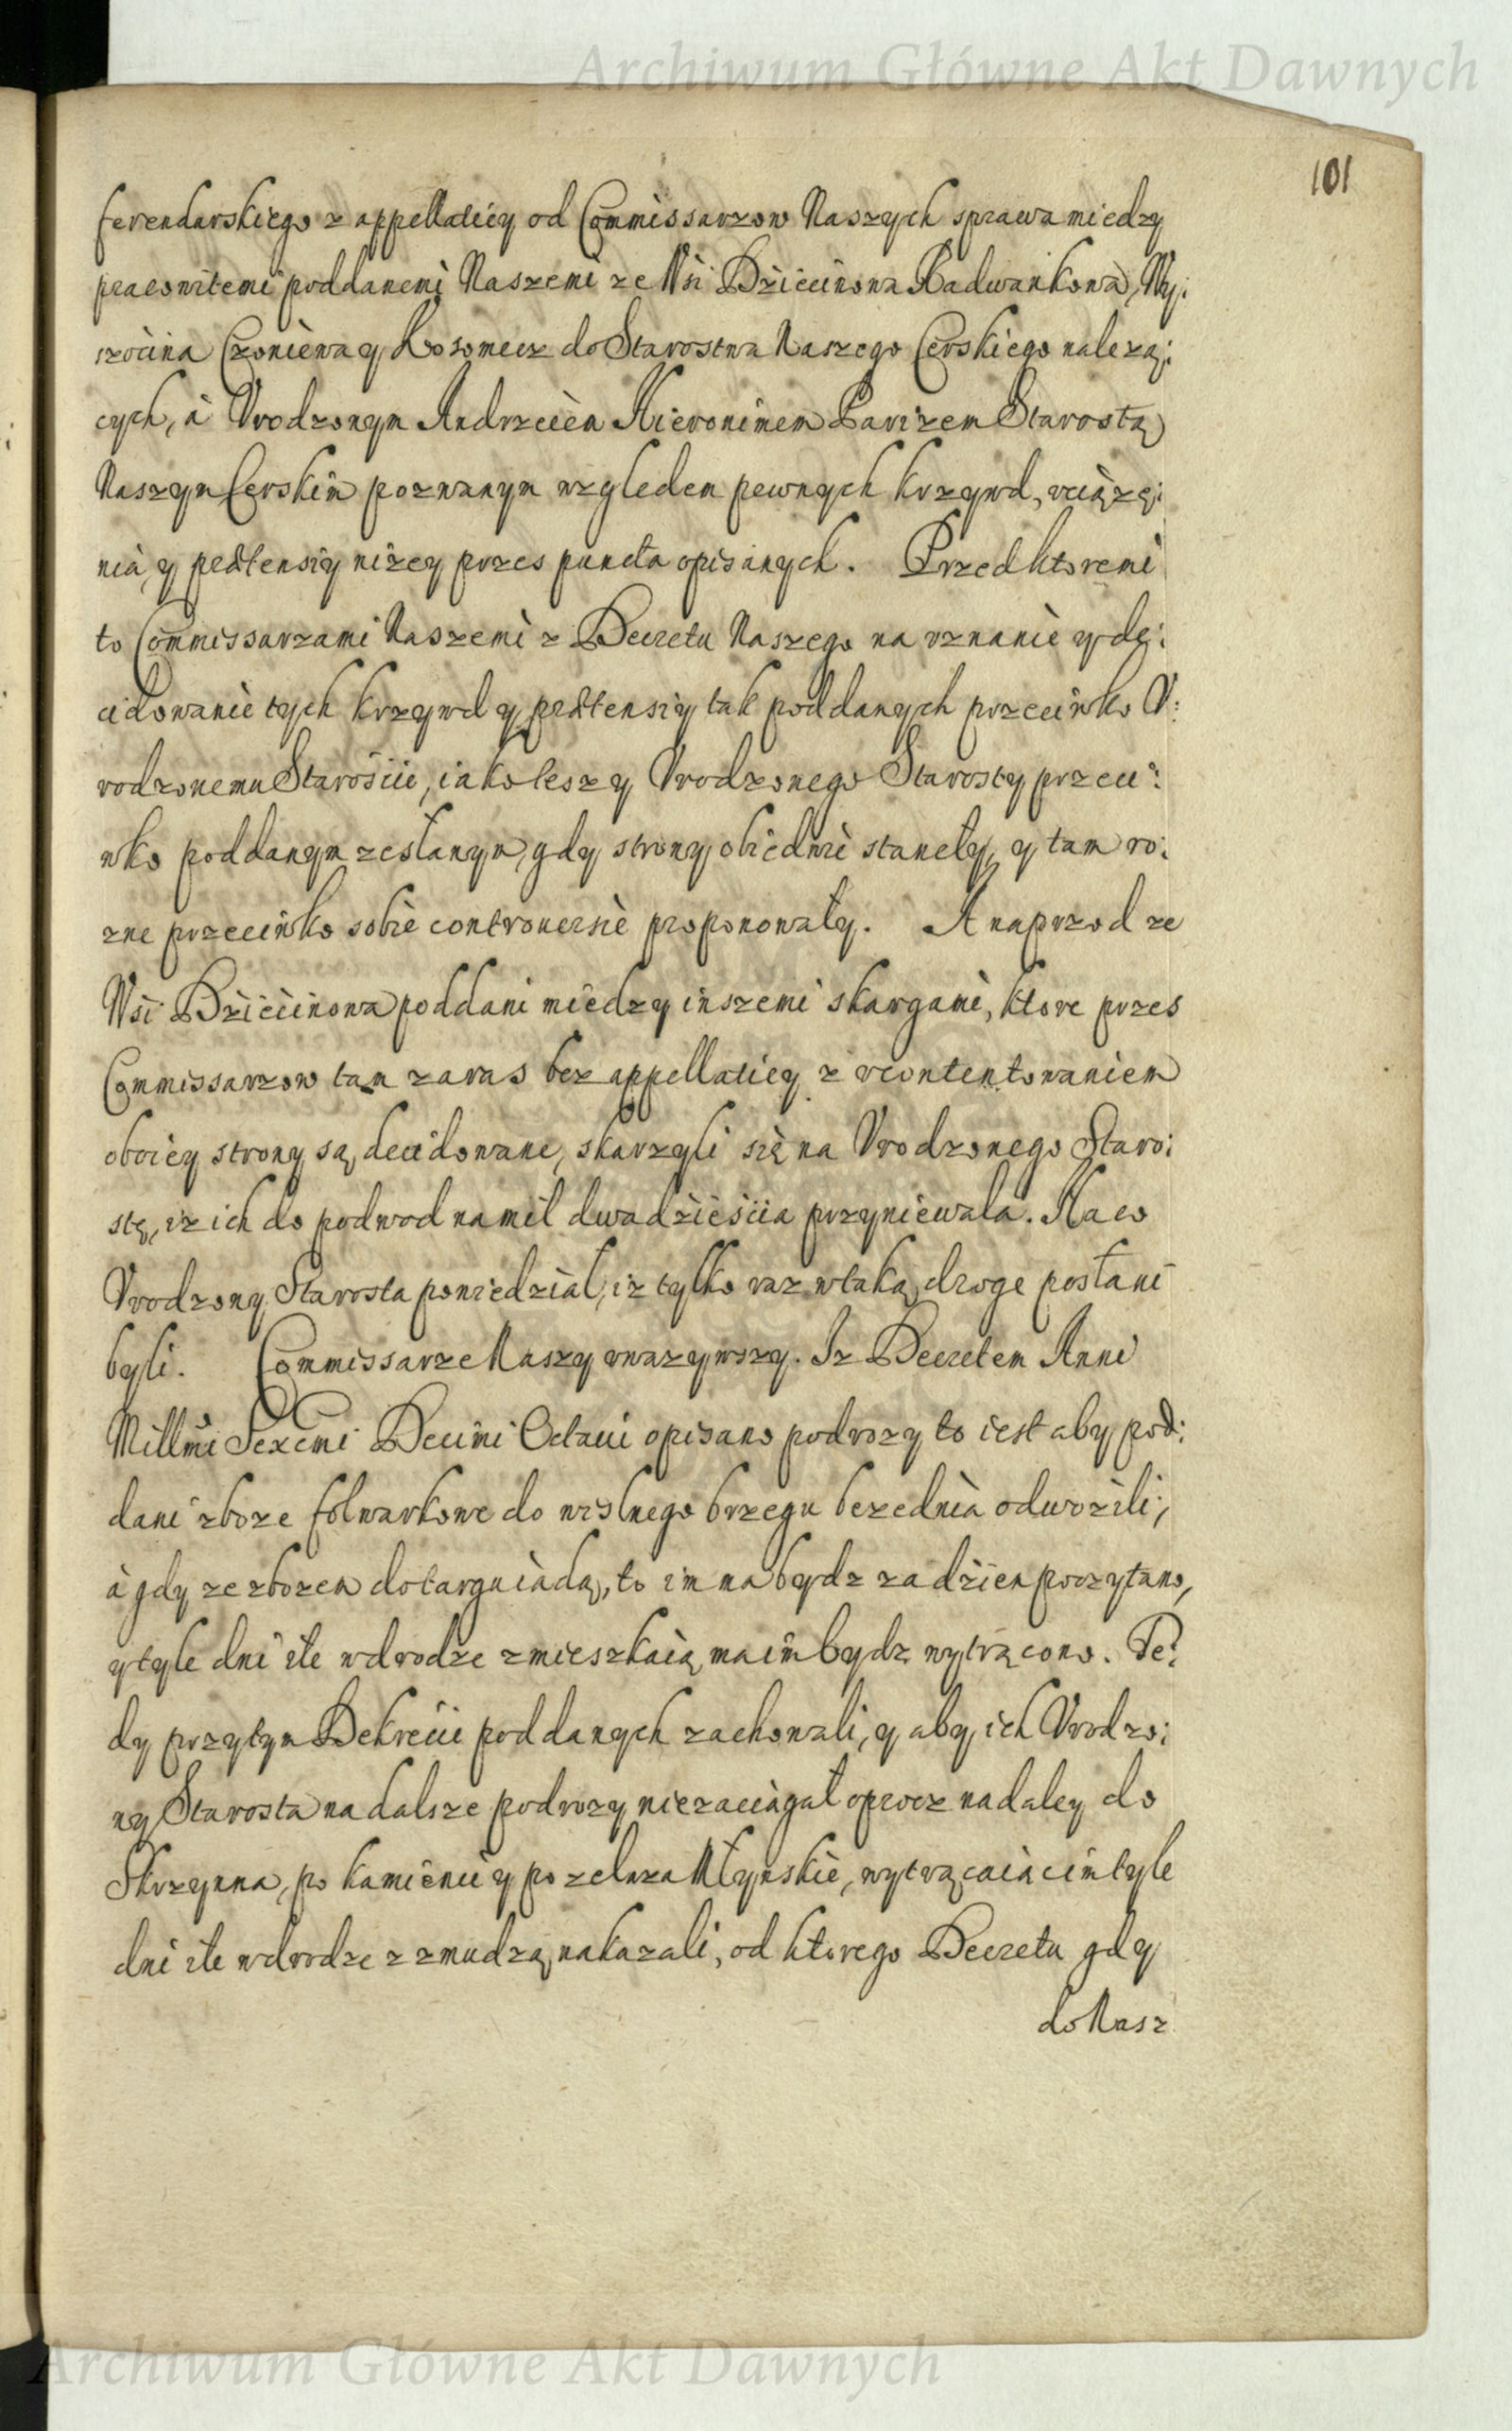 Archiwum Główne Akt Dawnych
101
ferendarskiego z appellatiey od Commissarzow Naszych sprawa miedzy
pracowitemi poddanemi Naszemi ze Wsi Dziecinowa Radwankowa, Wy:
szocina Czoniewa y Kosomecz do Starostwa Naszego Cerskiego nalezą:
cych, à Vrodzonym Andrzeiem Hieronimem Parizem Starostą
Naszym Cerskim poznanym względem pewnych krzywd, vciąże:
nia, y prætensiy niżey przes puncta opisanych. Przed ktoremi
to Commissarzami Naszemi z Decretu Naszego na vznanie y de:
cidowanie tych krzywd y prætensiy tak poddanych przeciwko V:
rodzonemu Starosćie, iako tesz y Vrodzonego Starosty przeci:
wko poddanym zesłanym, gdy strony obiedwie staneły, y tam ro:
zne przeciwko sobie controuersie proponowały. A naprzod ze
Wsi Dziecinowa poddani miedzy inszemi skargami, ktore przes
Commissarzow tam zaras bez appellatiey z vcontentowaniem
oboiey strony są decidowane, skarzyli się na Vrodzonego Staro:
stę, iz ich do podwod na mil dwadzieścia przyniewala. Na co
Vrodzony Starosta powiedział, iz tylko raz w taką droge posłani
byli. Commissarze Naszy vwazywszy. Iz Decretem Anni
Millmi Sexcmi Decimi Octaui opisano podrozy to iest aby pod:
dani zboze folwarkowe do wislnego brzegu beze dnia odwozili;
à gdy ze zbozem do targu iadą, to im ma bydz za dzien poczytano,
y tyle dni ile w drodze zmieszkaią, ma im bydz wytrącono. Te:
dy przy tym Dekrecie poddanych zachowali, y aby ich Vrodzo:
ny Starosta na dalsze podrozy nie zaciągał oprocz nadaley do
Skrzynna, po kamienie y po zelaza Młynskie, wytrącaiąc im tyle
dni ile w drodze zzmudzą, nakazali, od ktorego Decretu gdy
do Nasz
Archiwum Główne Akt Dawnych